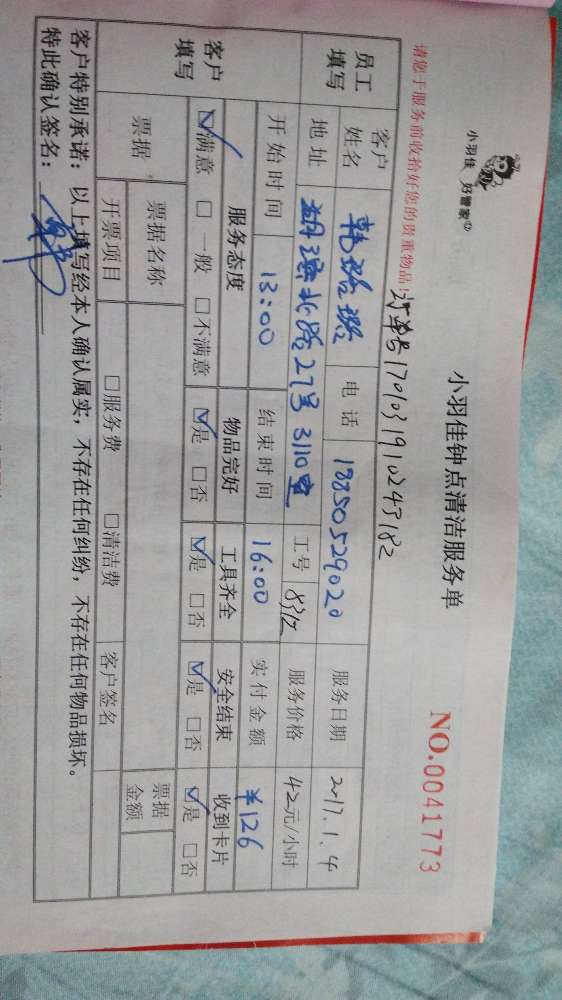 小羽佳 好管家
小羽佳钟点清洁服务单
NO.0041773
请您于服务前收拾好您的贵重物品!
员工填写 客户姓名 韩 电话 18850529020 服务日期 2017.1.4
地址 湖滨北路27号3110室 工号 服务价格 42元/小时
开始时间 13:00 结束时间 16:00 实付金额 ¥126
客户填写 服务态度 物品完好 工具齐全 安全结束 收到卡片
☑满意 □一般 □不满意 ☑是 □否 ☑是 □否 ☑是 □否 ☑是 □否
票据 票据名称 票据金额
开票项目 □服务费 □清洁费 客户签名
客户特别承诺: 以上填写经本人确认属实, 不存在任何纠纷, 不存在任何物品损坏。
特此确认签名: